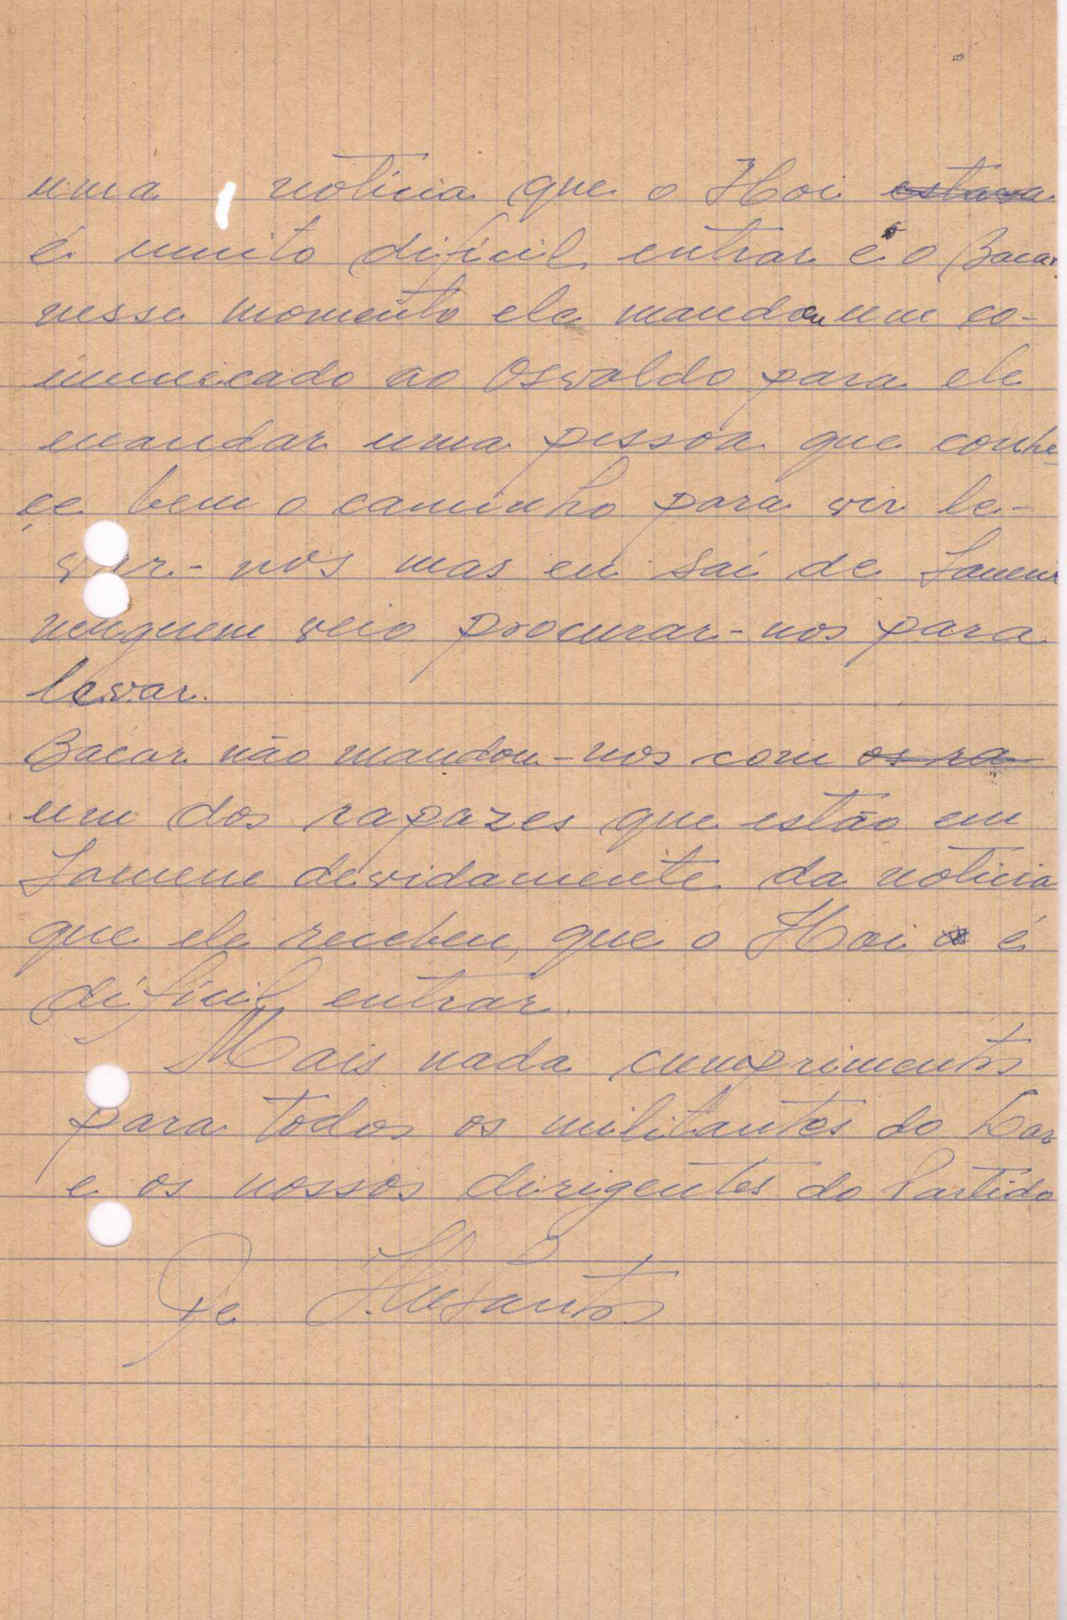 uma noticia que o Hoi estava
é muito dificil entrar e o Bacar
nesse momento ele mandou um co-
municado ao Osvaldo para ele
mandar uma pessoa que conhe-
ce bem o caminho para vir le-
var-nos mas eu saí de
ninguem veio procurar-nos para
levar.
Bacar não mandou-nos com os ra
um dos rapazes que estão em
devidamente da noticia
que ele recebeu, que o Hoi é
dificil entrar.
Mais nada cumprimentos
para todos os militantes do Lar
e os nossos dirigentes do Partido
De Santos